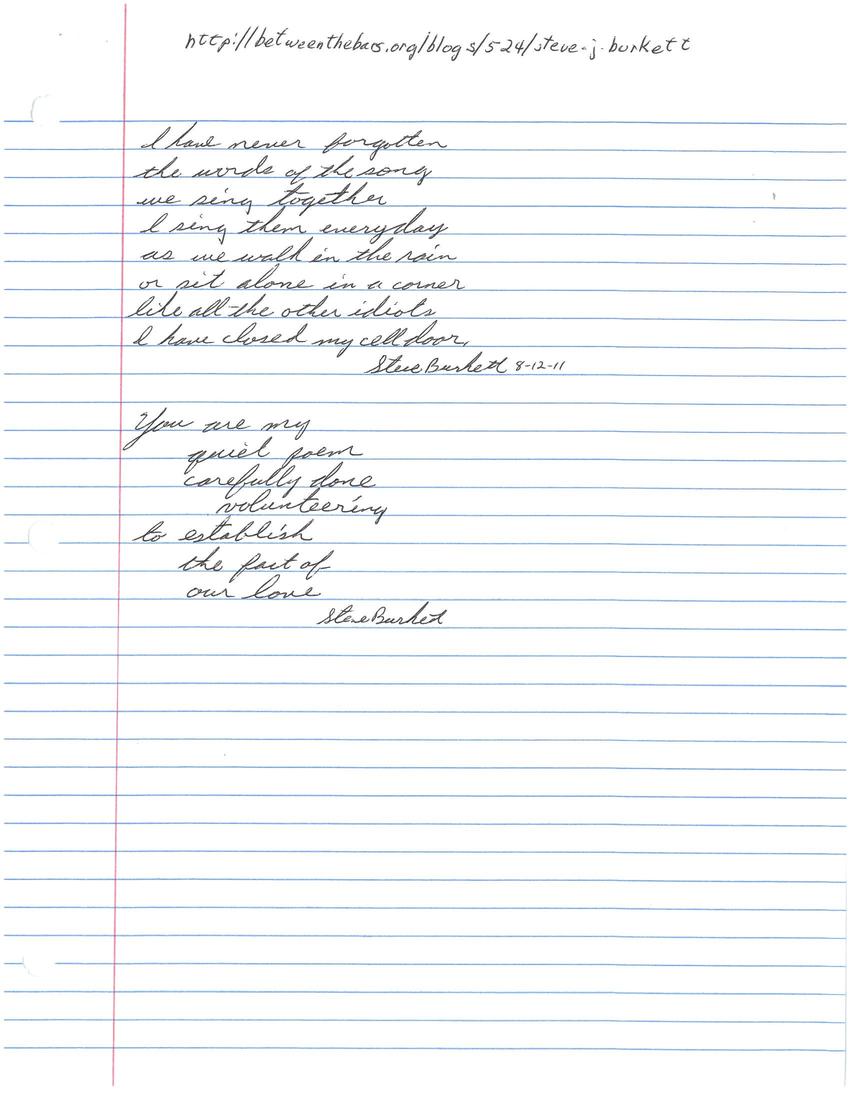 http://betweenthebars.org/blogs/524/steve-j-burkett
I have never forgotten
the words of the song
we sing together
I sing them everyday
as we walk in the rain
or sit alone in a corner
like all the other idiots
I have closed my cell door.
Steve Burkett 8-12-11
You are my
quiet poem
carefully done
volunteering
to establish
the fact of
our love
Steve Burkett